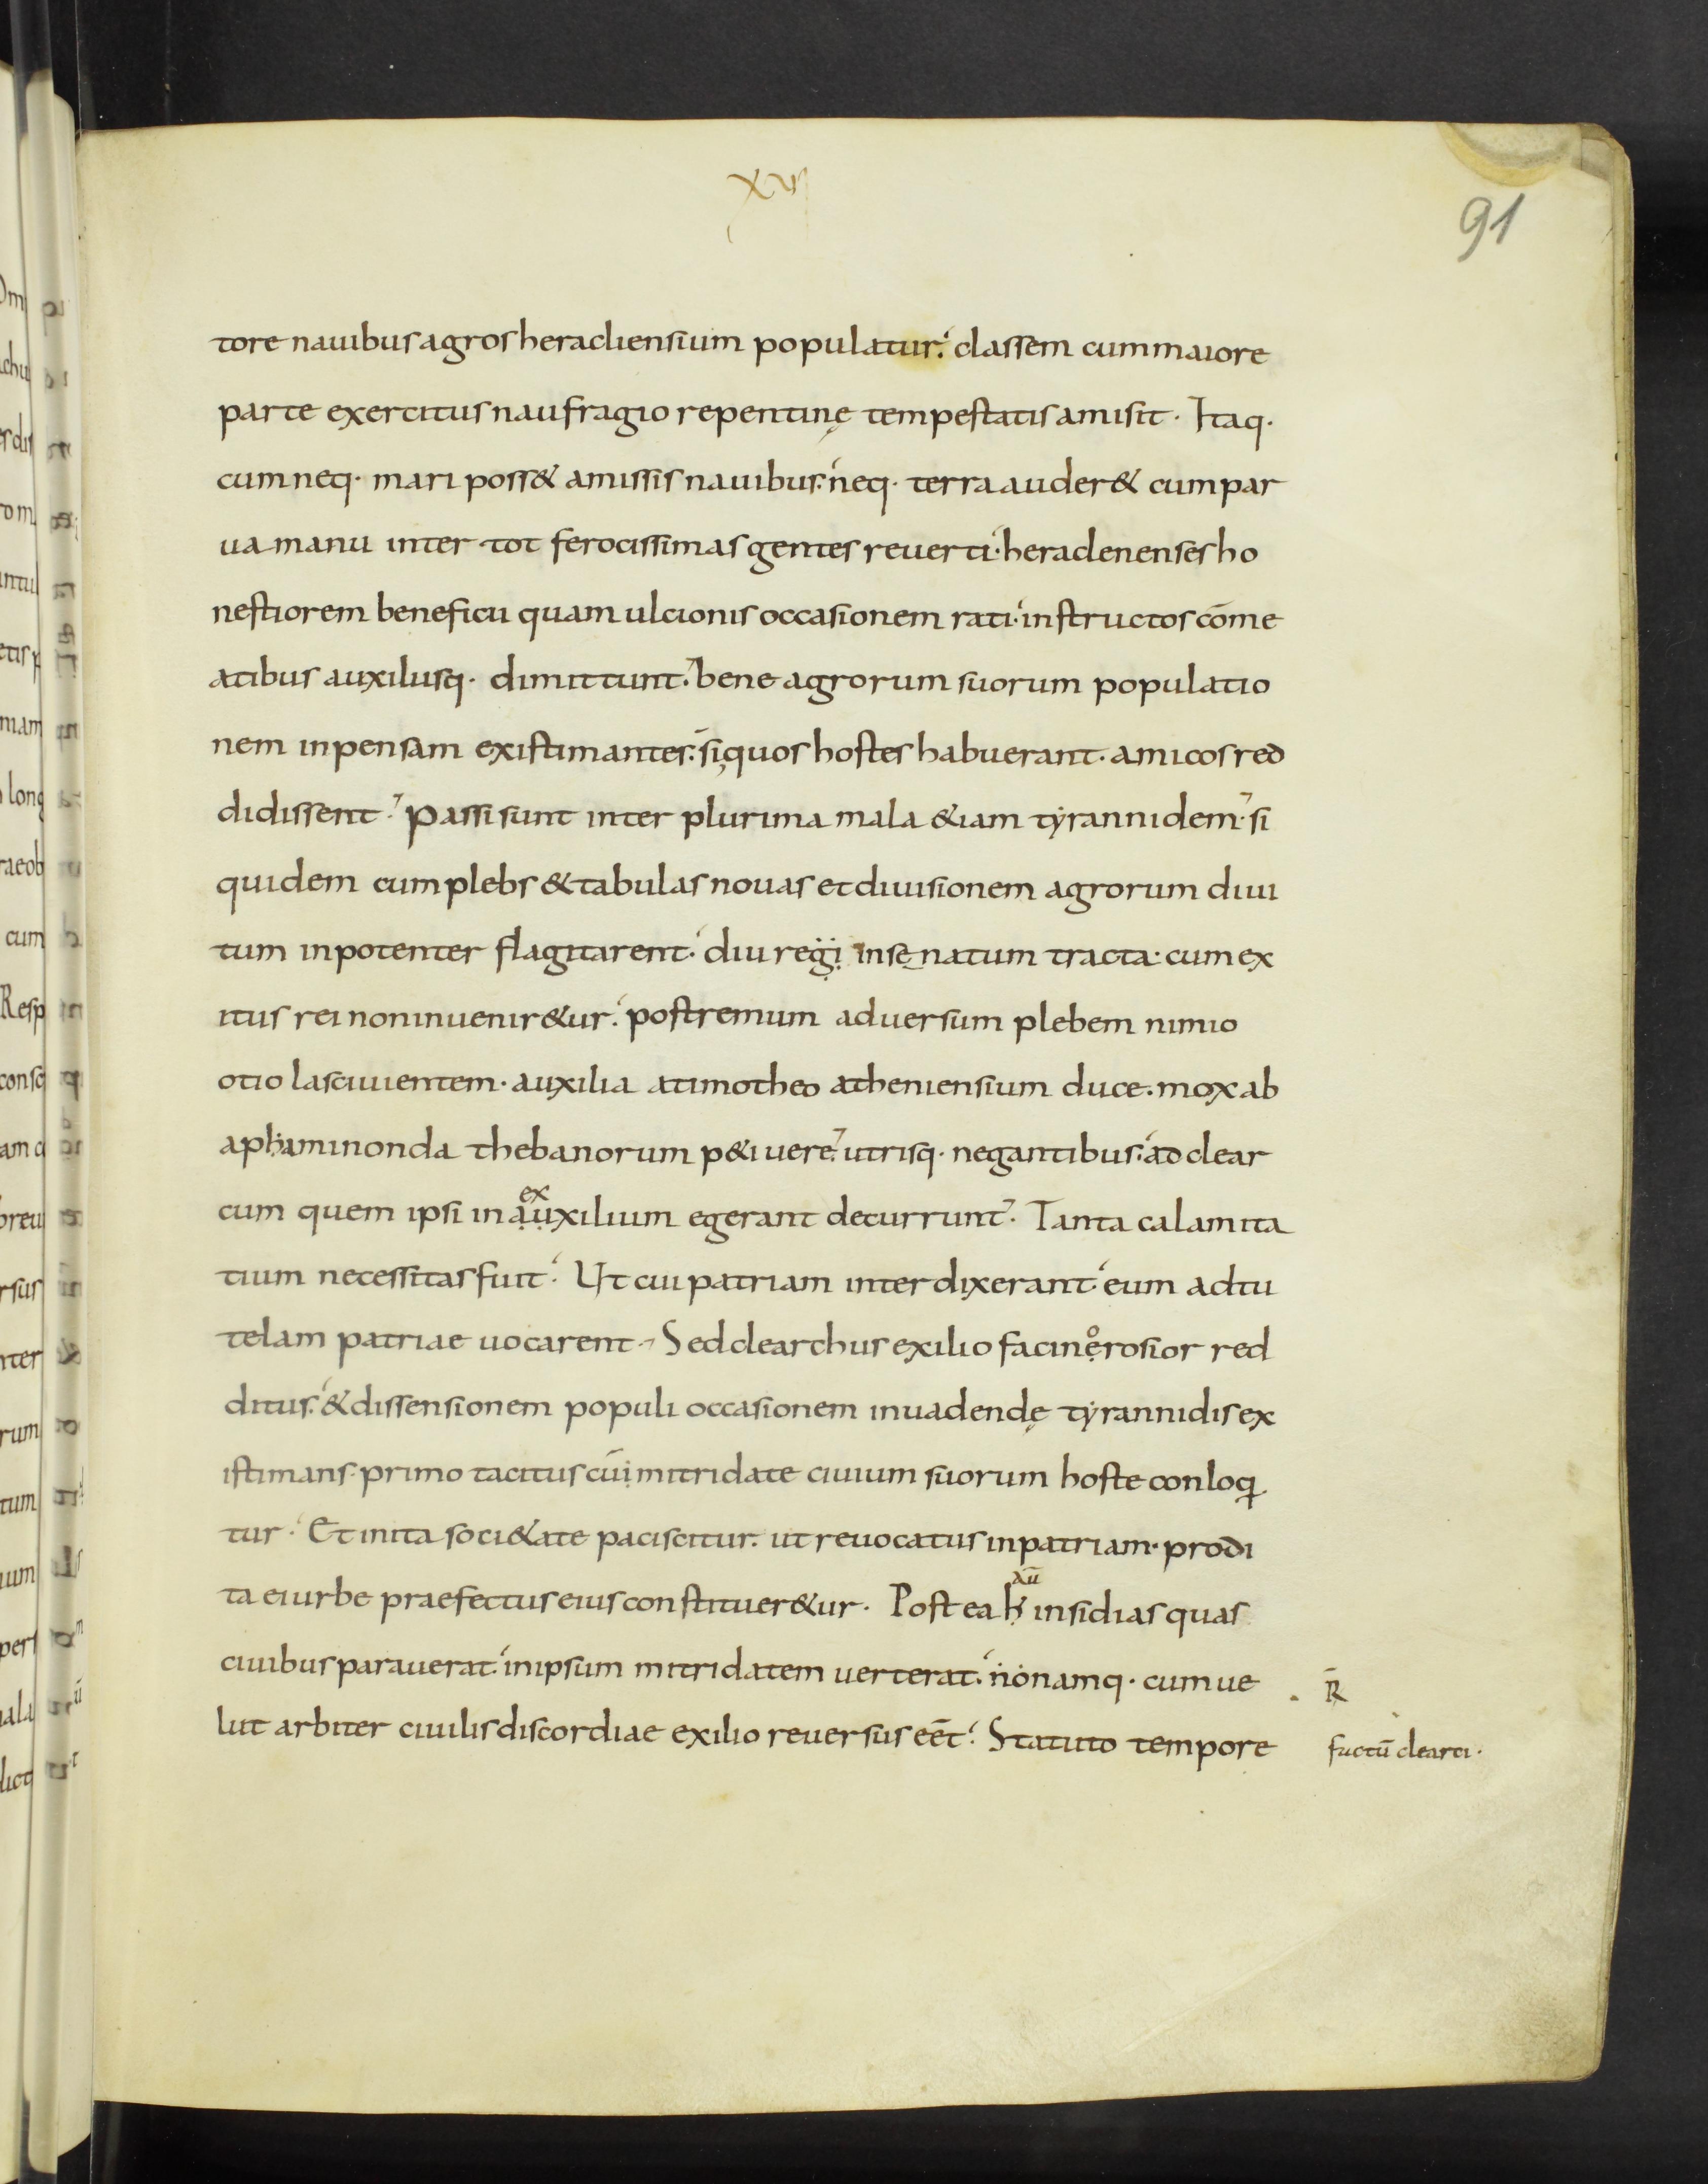 xvi
91
tore nauibus agros heracliensium populatur. classem cum maiore
parte exercitus naufragio repentinę tempestatis amisit. Itaq.
cum neq. mari poss& amissis nauibus. neq. terra auder& cum par
ua manu inter tot ferocissimas gentes reuerti. heraclenenses ho
nestiorem beneficii quam ulcionis occasionem rati. instructos cōme
atibus auxiliisq. dimittunt. bene agrorum suorum populatio
nem inpensam existimantes. si quos hostes habuerant. amicos red
didissent. Passi sunt inter plurima mala &iam tyrannidem. si
quidem cum plebs & tabulas nouas et diuisionem agrorum diui
tum inpotenter flagitarent. diu regi in senatum tracta. cum ex
itus rei non inuenir&ur. postremum aduersum plebem nimio
otio lasciuientem. auxilia a timotheo atheniensium duce. mox ab
aphaminonda thebanorum p&iuere. utrisq. negantibus. ad clear
cum quem ipsi in auxilium egerant decurrunt. Tanta calamita
ex
tium necessitas fuit. Ut cui patriam interdixerant eum ad tu
telam patriae uocarent. Sed clearchus exilio facinerosior red
o
ditus. & dissensionem populi occasionem inuadendę tyrannidis ex
istimans. primo tacitus cūi mitridate ciuium suorum hoste conloq
tur. Et inita soci&ate paciscitur. ut reuocatus in patriam. prodi
ta ei urbe praefectus eius constituer&ur. Postea h insidias quas
aū
ciuibus parauerat. in ipsum mitridatem uerterat. nonamq. cum ue
lut arbiter ciuilis discordiae exilio reuersus eēt. Statuto tempore
R̄
factū clearci.